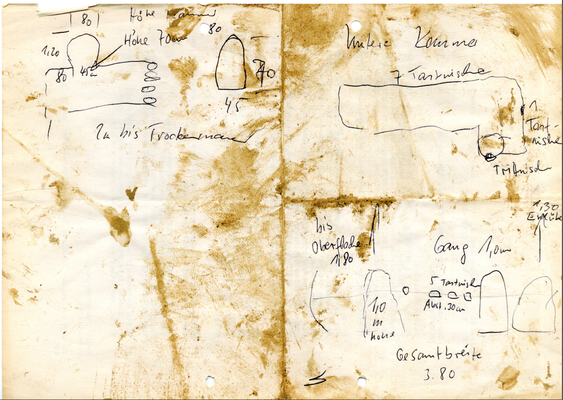 80
Höhe
80
Höhe 70cm
1,20
80
45
70
45
2m bis Trockenmauer
Untere Kammer
7 Tastnische
1
Tast-
nische
Trittnisch
1,30
bis
Oberfläche
1,80
Gang 1,0m
5 Tastnisch
Abst. 30cm
1,10
m
Höhe
Gesamtbreite
3.80